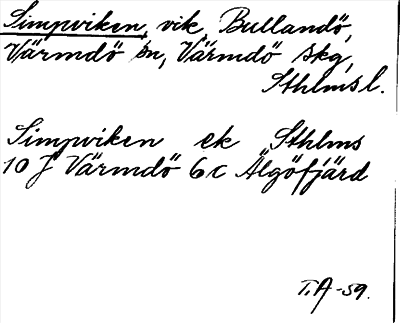 Simpviken, vik, Bullandö,
Värmdö sn, Värmdö skg,
Sthlms l.
Simpviken ek Sthlms
10 J Värmdö 6c Älgöfjärd
T.A -59.